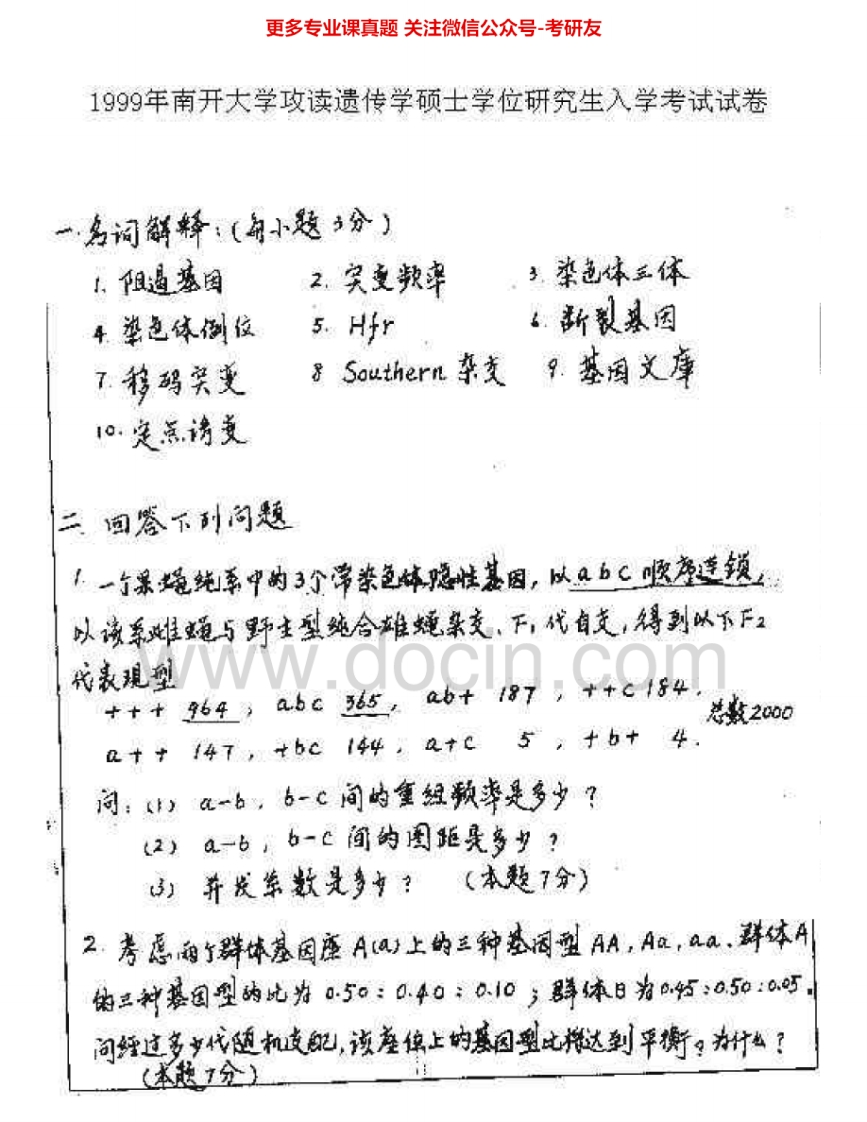 更多专业课真题 关注微信公众号-考研友
1999年南开大学攻读遗传学硕士学位研究生入学考试试卷
一.名词解释:(每小题3分)
1. 阻遏基因 2. 突变频率 3. 染色体三体
4. 染色体倒位 5. Hfr 6. 断裂基因
7. 移码突变 8 Southern 杂交 9. 基因文库
10. 定点诱变
二. 回答下列问题
1. 一个果蝇纯系中的3个常染色体隐性基因,以 a b c 顺序连锁,
以该系雌蝇与野生型纯合雄蝇杂交、F₁代自交,得到以下F₂
代表现型
www.docin.com
+ + + 964, abc 365, ab+ 187, ++c 184.
总数2000
a++ 147, +bc 144, a+c 5, +b+ 4.
问:(1) a-b, b-c 间的重组频率是多少?
(2) a-b, b-c 间的图距是多少?
(3) 并发系数是多少? (本题7分)
2. 考虑两个群体基因座 A(a)上的三种基因型 AA, Aa, aa. 群体A
的三种基因型的比为 0.50:0.40:0.10; 群体B为 0.45:0.50:0.05.
问经过多少代随机交配,该座位上的基因型比将达到平衡。为什么?
(本题7分)